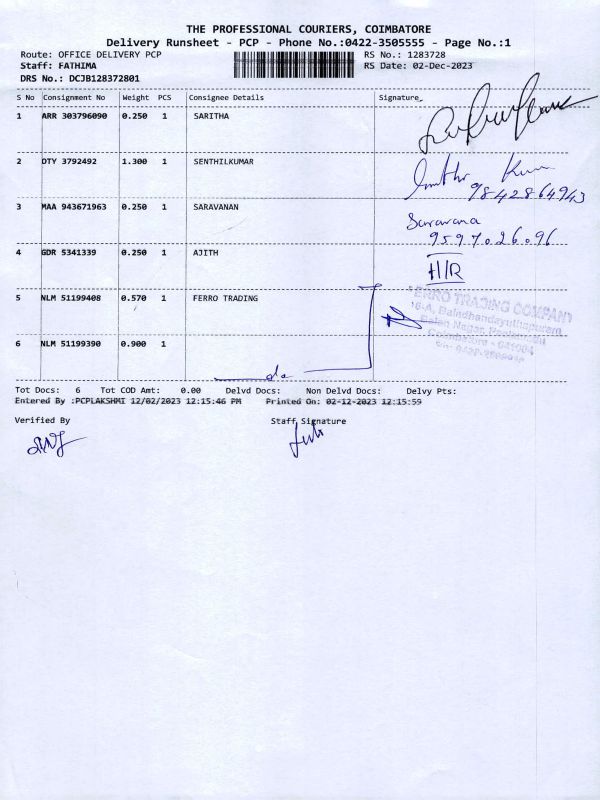 THE PROFESSIONAL COURIERS, COIMBATORE
Delivery Runsheet - PCP - Phone No.:0422-3505555 - Page No.:1
Route: OFFICE DELIVERY PCP RS No.: 1283728
Staff: FATHIMA RS Date: 02-Dec-2023
DRS No.: DCJB128372801
S No Consignment No Weight PCS Consignee Details Signature
1 ARR 303796090 0.250 1 SARITHA
2 OTY 3792492 1.300 1 SENTHILKUMAR
9842864943
3 MAA 943671963 0.250 1 SARAVANAN Saravana
9597026096
4 GDR 5341339 0.250 1 AJITH H/R
5 NLM 51199408 0.570 1 FERRO TRADING FERRO TRADING COMPANY
16-A, Baladhandayuthapuram
Coimbatore - 641004
6 NLM 51199390 0.900 1 do
Tot Docs: 6 Tot COD Amt: 0.00 Delvd Docs: Non Delvd Docs: Delvy Pts:
Entered By :PCPLAKSHMI 12/02/2023 12:15:46 PM Printed On: 02-12-2023 12:15:59
Verified By Staff Signature